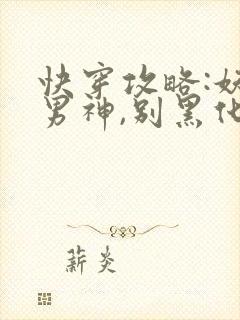 快穿攻略:妖
男神,别黑化
薪炎